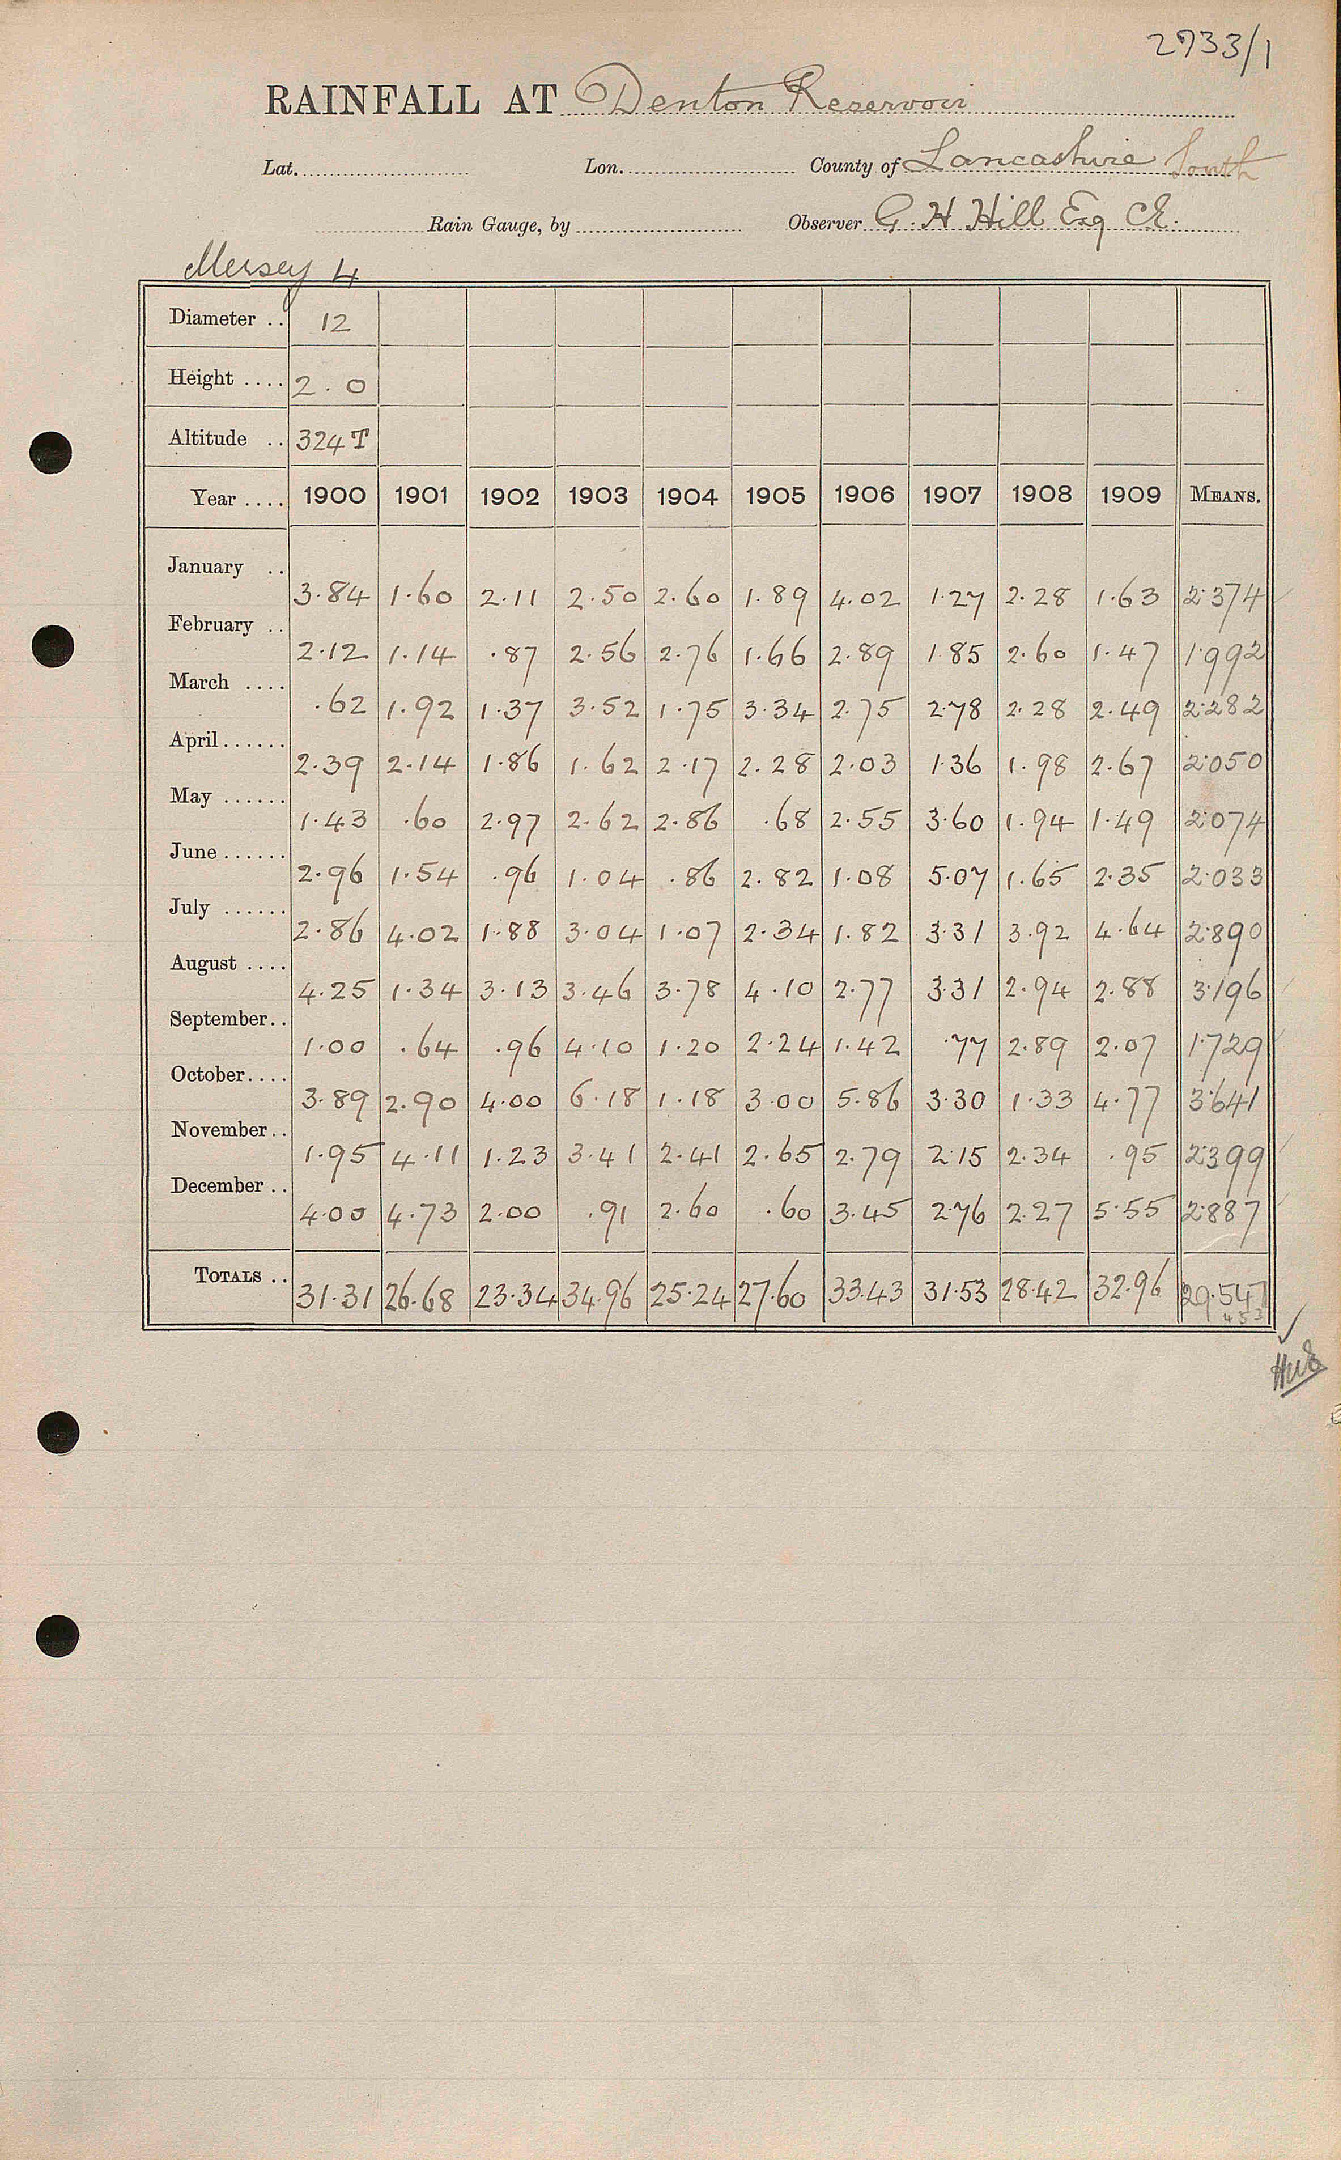 2733/1
RAINFALL AT Denton Reservoir
Lat. Lon. County of Lancashire South
Rain Gauge, by Observer G. H Hill Esq CE.
Mersey 4
Diameter .. 12
Height .... 2.0
Altitude .. 324 T
Year .... 1900 1901 1902 1903 1904 1905 1906 1907 1908 1909 MEANS.
January .. 3.84 1.60 2.11 2.50 2.60 1.89 4.02 1.27 2.28 1.63 2.374
February .. 2.12 1.14 .87 2.56 2.76 1.66 2.89 1.85 2.60 1.47 1.992
March .... .62 1.92 1.37 3.52 1.75 3.34 2.75 2.78 2.28 2.49 2.282
April...... 2.39 2.14 1.86 1.62 2.17 2.28 2.03 1.36 1.98 2.67 2.050
May ...... 1.43 .60 2.97 2.62 2.86 .68 2.55 3.60 1.94 1.49 2.074
June ...... 2.96 1.54 .96 1.04 .86 2.82 1.08 5.07 1.65 2.35 2.033
July ...... 2.86 4.02 1.88 3.04 1.07 2.34 1.82 3.31 3.92 4.64 2.890
August .... 4.25 1.34 3.13 3.46 3.78 4.10 2.77 3.31 2.94 2.88 3.196
September.. 1.00 .64 .96 4.10 1.20 2.24 1.42 .77 2.89 2.07 1.729
October.... 3.89 2.90 4.00 6.18 1.18 3.00 5.86 3.30 1.33 4.77 3.641
November.. 1.95 4.11 1.23 3.41 2.41 2.65 2.79 2.15 2.34 .95 2.399
December .. 4.00 4.73 2.00 .91 2.60 .60 3.45 2.76 2.27 5.55 2.887
TOTALS .. 31.31 26.68 23.34 34.96 25.24 27.60 33.43 31.53 28.42 32.96 29.547